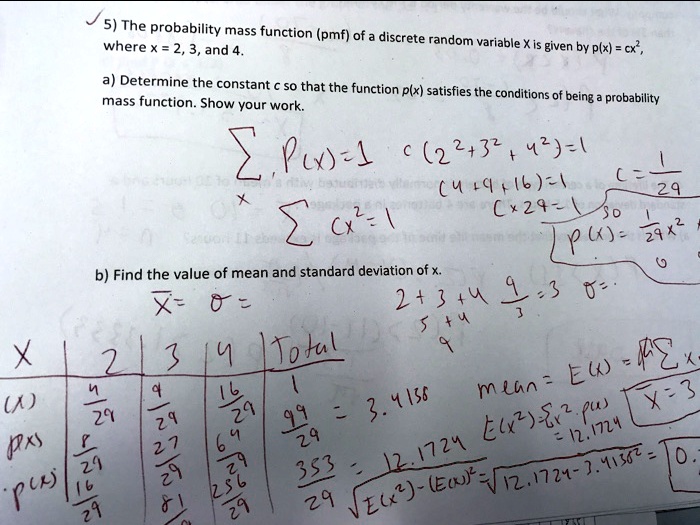 ✓ 5) The probability mass function (pmf) of a discrete random variable X is given by p(x) = cx²,
where x = 2, 3, and 4.
a) Determine the constant c so that the function p(x) satisfies the conditions of being a probability
mass function. Show your work.
∑ P(x)=1 c(2²+3²+4²)=1
x (4+9+16)=1 C=1/29
∑ Cx²=1 C×29=1 so p(x)=1/29x²
b) Find the value of mean and standard deviation of x.
X̄= σ= 2+3+4 9/3=3 σ=
5+4
9
X | 2 | 3 | 4 | Total
(x) 4/29 9/29 16/29 1
p(x) 8/29 27/29 64/29 99/29 = 3.4138 mean = E(x) = ∑x
p(x) 16/29 81/29 256/29 353/29 = 12.1724 E(x²)=∑x².p(x) X̄=3
= 12.1724
√E(x²)-(E(x))² = √12.1724-3.4138² = 0.